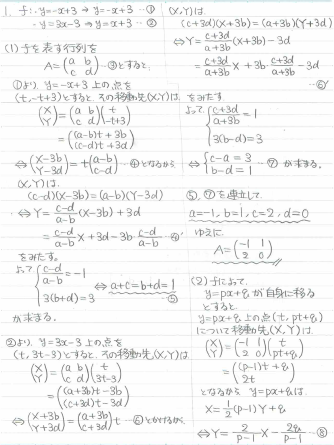 1. f: y=-x+3 → y=-x+3 …①
y=3x-3 → y=x+3 …②
(1) fを表す行列を
A=(a b
c d) ③とすると、
①より、y=-x+3 上の点を
(t, -t+3)とすると、その移動先(X,Y)は、
(X
Y)=(a b
c d)(t
-t+3)
=((a-b)t+3b
(c-d)t+3d)
⇔(X-3b
Y-3d)=t(a-b
c-d) …④となるから
(X,Y)は、
(c-d)(X-3b)=(a-b)(Y-3d)
⇔Y=c-d/a-b(X-3b)+3d
=c-d/a-b X+3d-3b c-d/a-b …④'
をみたす。
よって{c-d/a-b=-1
3(b+d)=3 ⇔ a+c=b+d=1 ⑤
が求まる。
②より、y=3x-3 上の点を
(t, 3t-3)とすると、その移動先(X,Y)は
(X
Y)=(a b
c d)(t
3t-3)
=((a+3b)t-3b
(c+3d)t-3d)
⇔(X+3b
Y+3d)=(a+3b
c+3d)t …⑥とかけるから、
(X,Y)は、
(c+3d)(X+3b)=(a+3b)(Y+3d)
⇔Y=c+3d/a+3b(X+3b)-3d
=c+3d/a+3b X+3b c+3d/a+3b-3d
…⑥'
をみたす
よって{c+3d/a+3b=1
3(b-d)=3
⇔{c-a=3
b-d=1 …⑦ が求まる。
⑤, ⑦を連立して、
a=-1, b=1, c=2, d=0
ゆえに
A=(-1 1
2 0)
(2) fによって、
y=px+q が自身に移る
とすると
y=px+q上の点(t, pt+q)
について移動先(X,Y)は、
(X
Y)=(-1 1
2 0)(t
pt+q)
=((p-1)t+q
2t)
となるから y=px+qは、
X=1/2(p-1)Y+q
⇔Y=2/p-1 X-2q/p-1 …⑧